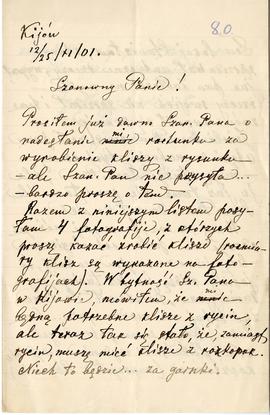 Kijów
12/25/XI/01.
80
Szanowny Panie!
Prosiłem już dawno Szan. Pana o
nadesłanie mi rachunku za
wyrobienie kliszy z rysunku
– ale Szan. Pan nie przysyła...
– bardzo proszę o tem.
Razem z niniejszym listem posy-
łam 4 fotografije, z których
proszę kazać zrobić klisze (rozmia-
ry klisz są wyrażone na foto-
grafijach). W bytność Sz. Pana
w Kijowie, mówiłem, że mi
będą potrzebne klisze z rycin,
ale teraz tak się stało, że, zamiast
rycin, muszę mieć klisze z rozkopok.
Niech to będzie... za garnki.